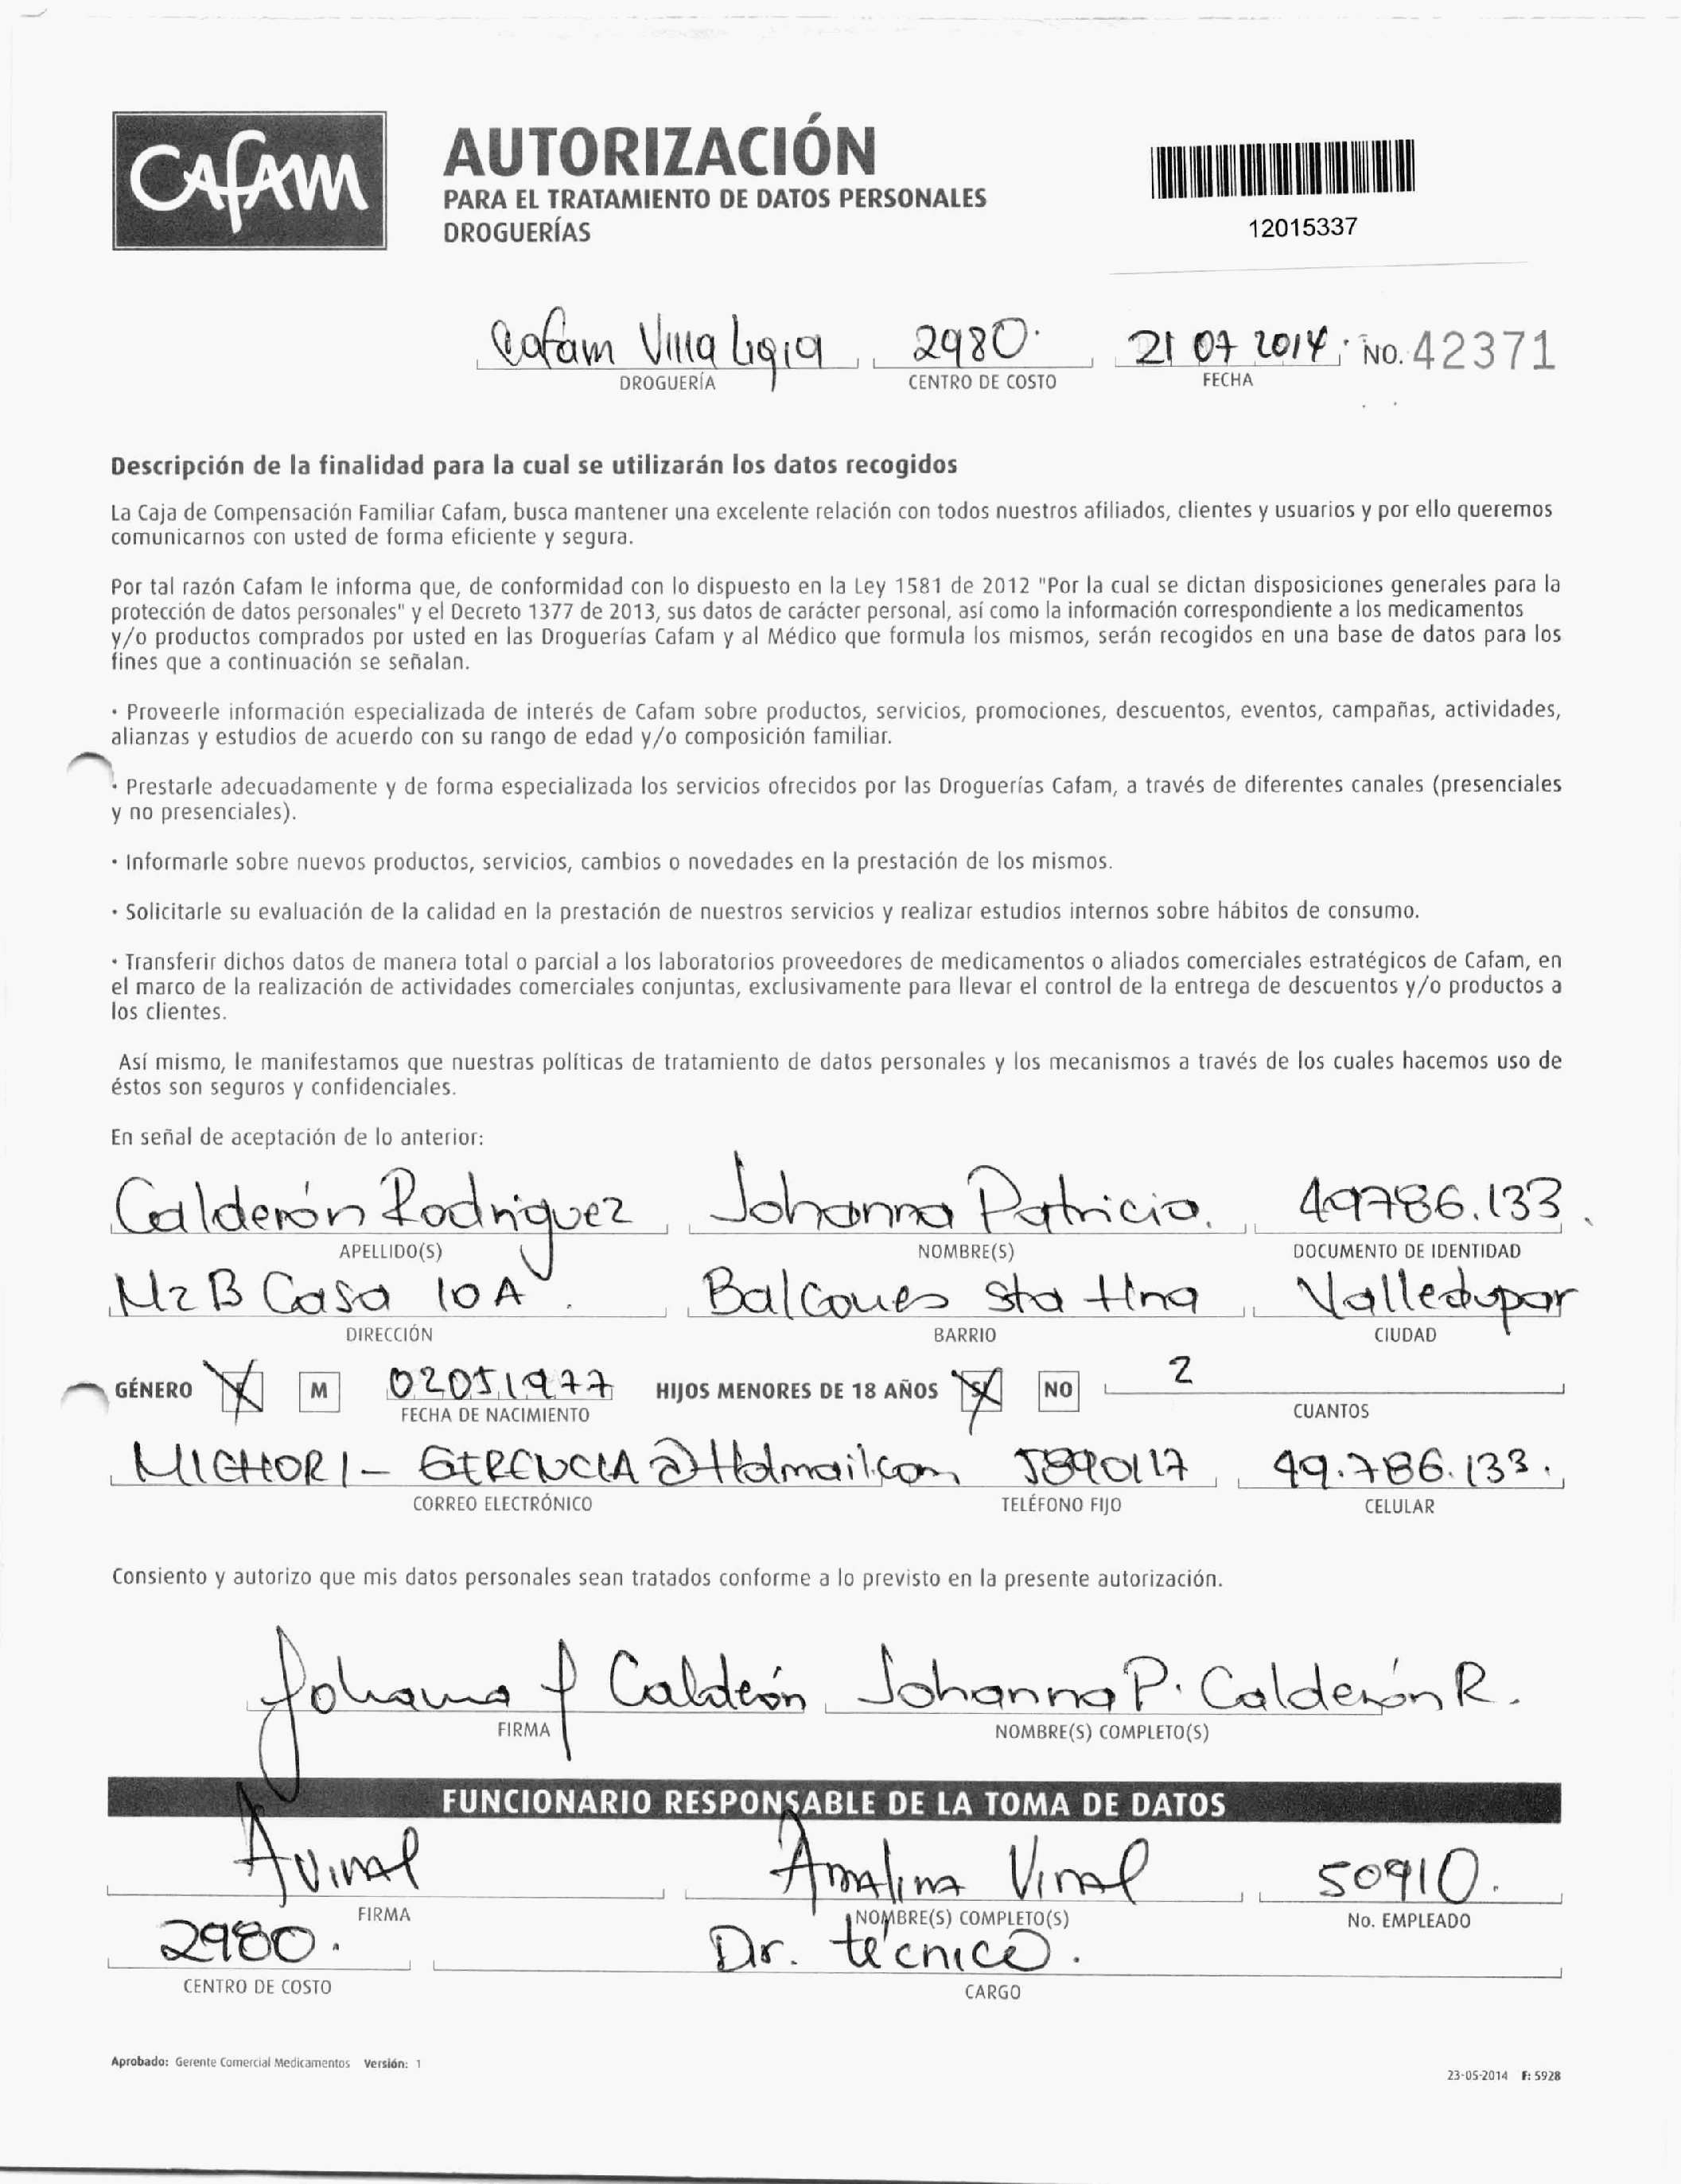 Cafam
AUTORIZACIÓN
PARA EL TRATAMIENTO DE DATOS PERSONALES
DROGUERÍAS
12015337
Cafam Villa Ligia 2980. 21 07 2014 No. 42371
DROGUERÍA CENTRO DE COSTO FECHA
Descripción de la finalidad para la cual se utilizarán los datos recogidos
La Caja de Compensación Familiar Cafam, busca mantener una excelente relación con todos nuestros afiliados, clientes y usuarios y por ello queremos
comunicarnos con usted de forma eficiente y segura.
Por tal razón Cafam le informa que, de conformidad con lo dispuesto en la Ley 1581 de 2012 "Por la cual se dictan disposiciones generales para la
protección de datos personales" y el Decreto 1377 de 2013, sus datos de carácter personal, así como la información correspondiente a los medicamentos
y/o productos comprados por usted en las Droguerías Cafam y al Médico que formula los mismos, serán recogidos en una base de datos para los
fines que a continuación se señalan.
• Proveerle información especializada de interés de Cafam sobre productos, servicios, promociones, descuentos, eventos, campañas, actividades,
alianzas y estudios de acuerdo con su rango de edad y/o composición familiar.
• Prestarle adecuadamente y de forma especializada los servicios ofrecidos por las Droguerías Cafam, a través de diferentes canales (presenciales
y no presenciales).
• Informarle sobre nuevos productos, servicios, cambios o novedades en la prestación de los mismos.
• Solicitarle su evaluación de la calidad en la prestación de nuestros servicios y realizar estudios internos sobre hábitos de consumo.
• Transferir dichos datos de manera total o parcial a los laboratorios proveedores de medicamentos o aliados comerciales estratégicos de Cafam, en
el marco de la realización de actividades comerciales conjuntas, exclusivamente para llevar el control de la entrega de descuentos y/o productos a
los clientes.
Así mismo, le manifestamos que nuestras políticas de tratamiento de datos personales y los mecanismos a través de los cuales hacemos uso de
éstos son seguros y confidenciales.
En señal de aceptación de lo anterior:
Calderón Rodriguez Johanna Patricia. 49786.133
APELLIDO(S) NOMBRE(S) DOCUMENTO DE IDENTIDAD
Mz B Casa 10A Balcones Sta Valledupar
DIRECCIÓN BARRIO CIUDAD
GÉNERO M 02051977 HIJOS MENORES DE 18 AÑOS SI NO 2
FECHA DE NACIMIENTO CUANTOS
5890117 49.786.133.
CORREO ELECTRÓNICO TELÉFONO FIJO CELULAR
Consiento y autorizo que mis datos personales sean tratados conforme a lo previsto en la presente autorización.
Johanna P Calderón Johanna P. Calderón R.
FIRMA NOMBRE(S) COMPLETO(S)
FUNCIONARIO RESPONSABLE DE LA TOMA DE DATOS
50910.
FIRMA NOMBRE(S) COMPLETO(S) No. EMPLEADO
2980. Dr. técnico.
CENTRO DE COSTO CARGO
Aprobado: Gerente Comercial Medicamentos Versión: 1
23-05-2014 F: 5928